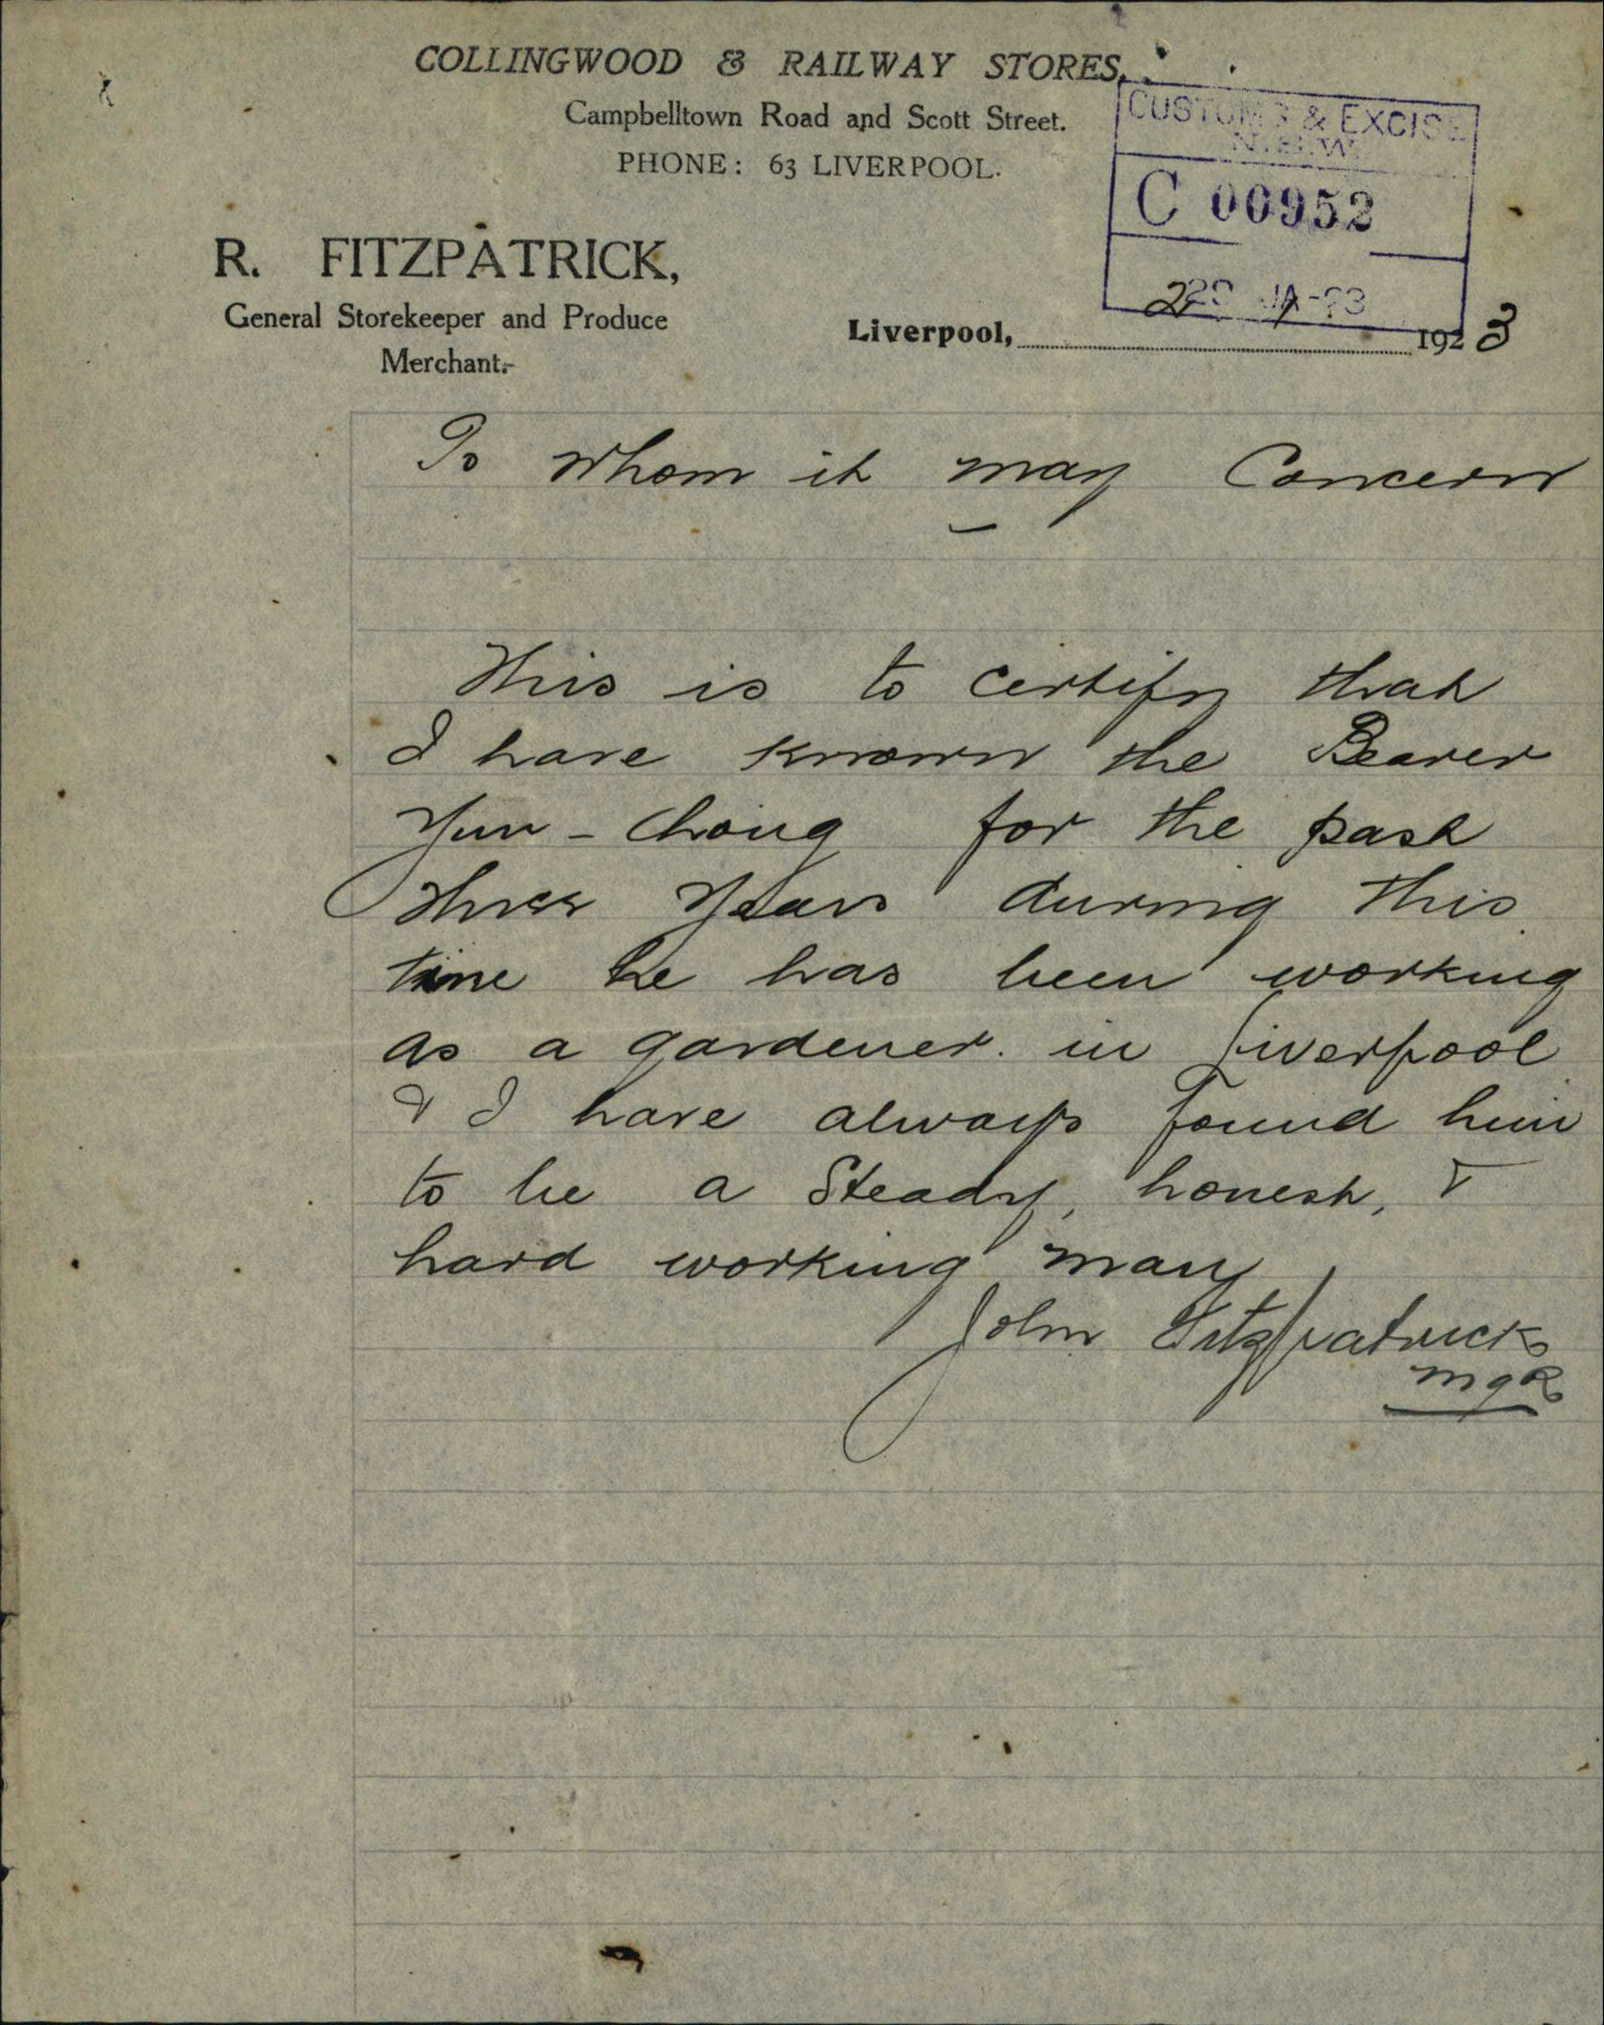 COLLINGWOOD & RAILWAY STORES,
Campbelltown Road and Scott Street.
PHONE: 63 LIVERPOOL.
CUSTOMS & EXCISE
N.S.W.
C 00952
R. FITZPATRICK,
General Storekeeper and Produce
Merchant.
Liverpool, 1923
To Whom it may Concern
This is to certify that
I have known the Bearer
Yun - Chong for the past
three Years during this
time he has been working
as a gardener. in Liverpool
& I have always found him
to be a Steady, honest, &
hard working man
John Fitzpatrick
MgR